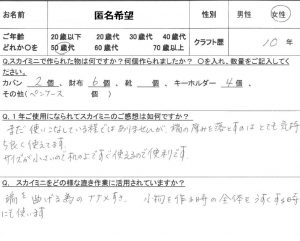 お名前 匿名希望 性別 男性 女性
ご年齢 20歳以下 20歳代 30歳代 40歳代
どれか○を 50歳代 60歳代 70歳以上 クラフト歴 10年
Q.スカイミニで作られた物は何ですか?何個作りましたか? ○を入れ、数量をご記入してください。
カバン 2個、 財布 6個、 靴 個、 キーホルダー 4個、
その他(ペンケース 個 )
Q.1年ご使用になられてスカイミニのご感想は如何ですか?
まだ使いこなしている程ではありませんが、端の厚みを落とすのはとても気持
ち良く使えてます。
サイズが小さいので机の上ですぐ使えるので便利です。
Q. スカイミニをどの様な漉き作業に活用されていますか?
端を曲げる為のナナメすき、 小物を作る時の全体をうすくする時
にも使います